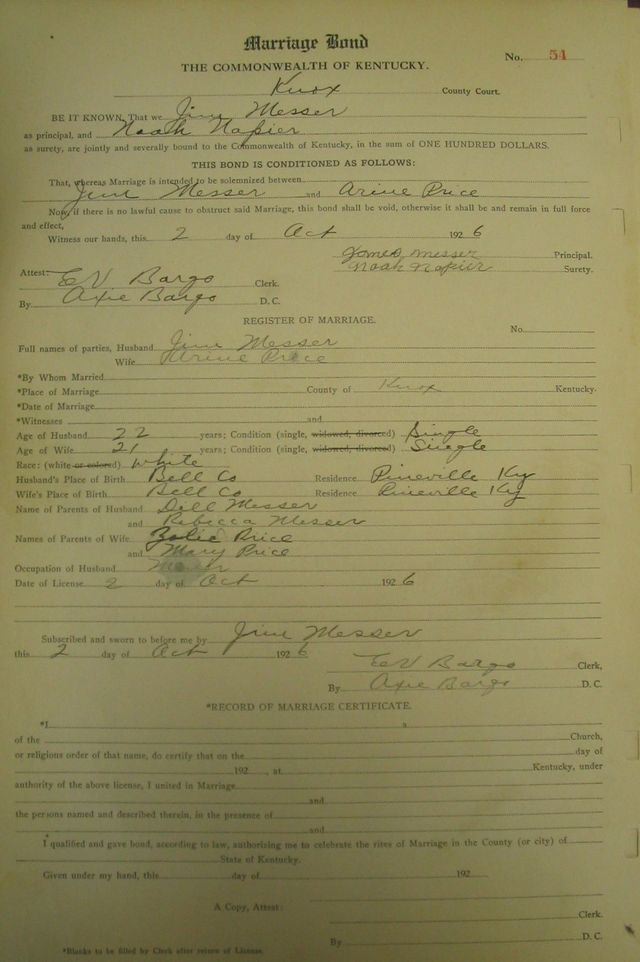 Marriage Bond
No. 54
THE COMMONWEALTH OF KENTUCKY.
Knox County Court.
BE IT KNOWN, That we Jim Messer
as principal, and Noah Napier
as surety, are jointly and severally bound to the Commonwealth of Kentucky, in the sum of ONE HUNDRED DOLLARS.
THIS BOND IS CONDITIONED AS FOLLOWS:
That, whereas Marriage is intended to be solemnized between
Jim Messer and Arine Price
Now, if there is no lawful cause to obstruct said Marriage, this bond shall be void, otherwise it shall be and remain in full force
and effect,
Witness our hands, this 2 day of Oct 1926
James Messer Principal.
Noah Napier Surety.
Attest: E V Bargo Clerk.
By Axie Bargo D. C.
REGISTER OF MARRIAGE.
No.
Full names of parties, Husband Jim Messer
Wife Arine Price
*By Whom Married
*Place of Marriage County of Knox Kentucky.
*Date of Marriage
*Witnesses and
Age of Husband 22 years; Condition (single, widowed, divorced) Single
Age of Wife 21 years; Condition (single, widowed, divorced) Single
Race: (white or colored) white
Husband's Place of Birth Bell Co Residence Pineville Ky
Wife's Place of Birth Bell Co Residence Pineville Ky
Name of Parents of Husband Dill Messer
and Rebecca Messer
Names of Parents of Wife Price
and Mary Price
Occupation of Husband
Date of License 2 day of Oct 1926
Subscribed and sworn to before me by Jim Messer
this 2 day of Oct 1926
E V Bargo Clerk,
By Axie Bargo D. C.
*RECORD OF MARRIAGE CERTIFICATE.
*I, a
of the Church,
or religious order of that name, do certify that on the day of
192 , at Kentucky, under
authority of the above license, I united in Marriage
and
the persons named and described therein, in the presence of
and
I qualified and gave bond, according to law, authorizing me to celebrate the rites of Marriage in the County (or city) of
State of Kentucky.
Given under my hand, this day of 192
A Copy, Attest:
Clerk.
By D. C.
*Blanks to be filled by Clerk after return of License